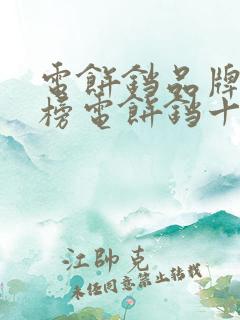 電餅鐺品牌
榜電餅鐺十
江帥克
未经同意禁止转载